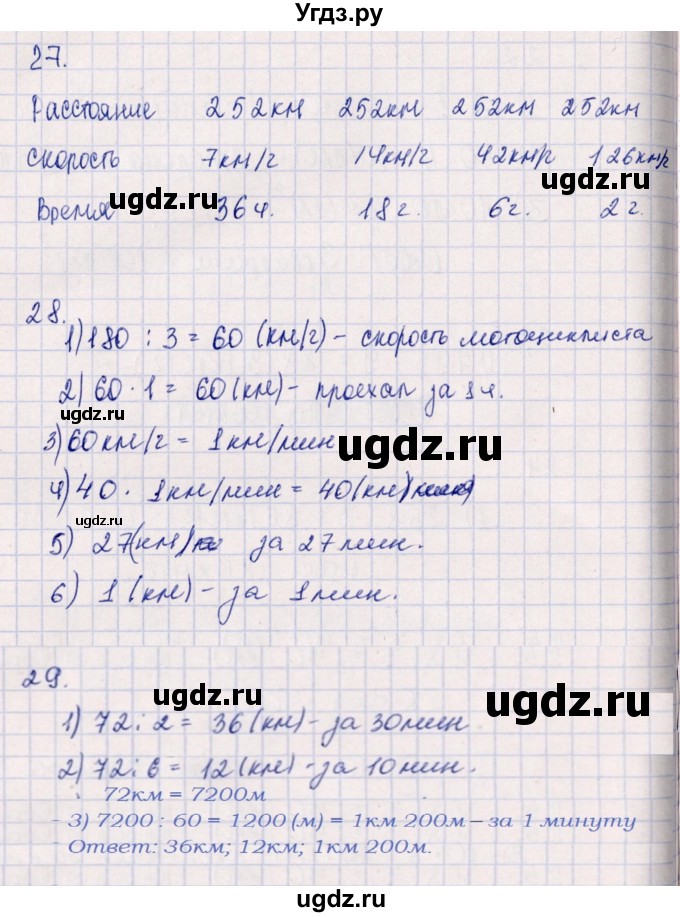 Угдз.ру
27.
Расстояние 252км 252км 252км 252км
Скорость 7км/г 14км/г 42км/г 126км/г
ugdz.ru
Время 36ч. 18г. 6г. 2г.
ugdz.ru
28.
1) 180 : 3 = 60 (км/г) – скорость мотоциклиста
2) 60 · 1 = 60 (км) – проехал за 1ч.
ugdz.ru
3) 60км/г = 1км/мин
ugdz.ru
4) 40 · 1км/мин = 40 (км)
ugdz.ru
5) 27 (км) за 27мин.
6) 1 (км) – за 1мин.
ugdz.ru
29.
ugdz.ru
1) 72 : 2 = 36 (км) – за 30мин
ugdz.ru
2) 72 : 6 = 12 (км) – за 10мин.
72км = 7200м
3) 7200 : 60 = 1200 (м) = 1км 200м – за 1 минуту
Ответ: 36км; 12км; 1км 200м.
ugdz.ru
ugdz.ru